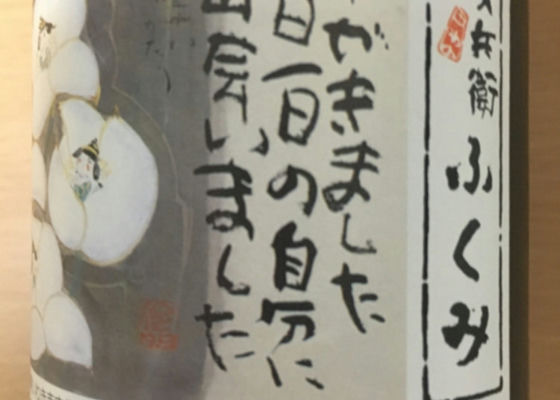 兵衛 ふくみ
がきました
日一日の自分に
会いました